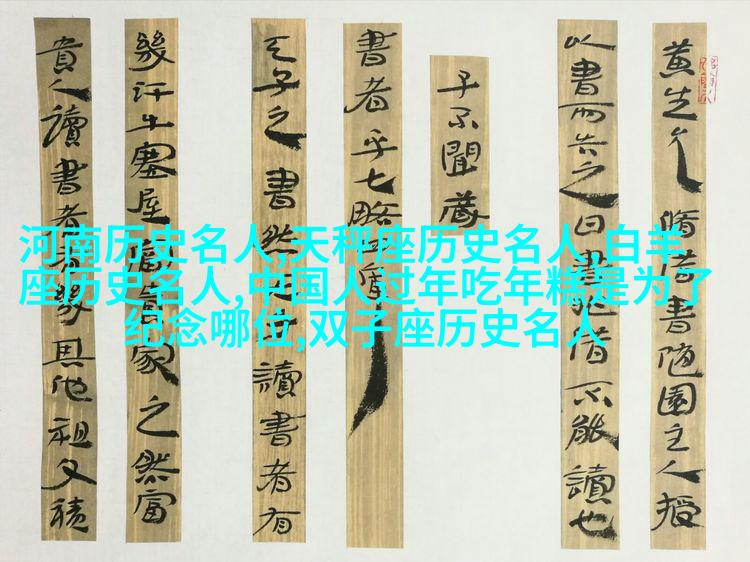 黄生允脩借書隨園主人授
以書而告之曰書非借不能讀也
子不聞藏
書者乎七略四庫
天子之書然天子讀書者有
幾汗牛塞屋富貴家之然富
貴人讀書者有幾其他祖父積
河南历史名人,天秤座历史名人,白羊
座历史名人,中国人过年吃年糕是为了
纪念哪位,双子座历史名人